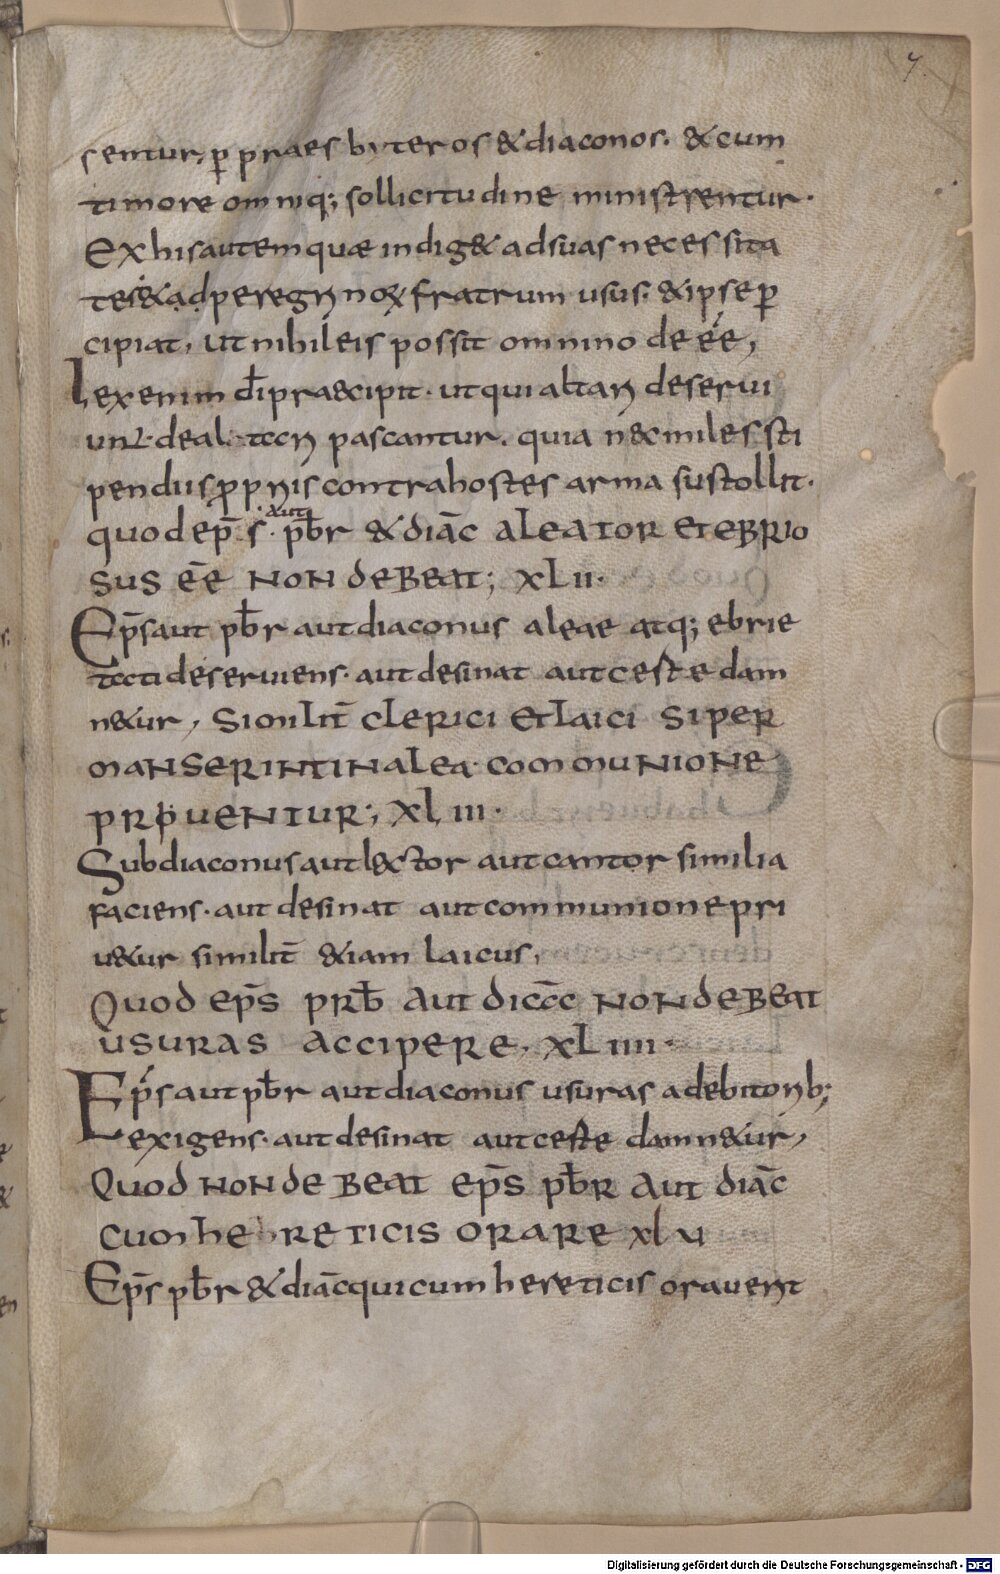 7.
sentur, ꝑ praesbyteros & diaconos. & cum
timore omniq; sollicitudine ministrentur.
Ex his autem quae indig& ad suas necessita
tes & ad peregrinoꝝ fratrum usus. & ipse ꝑ
cipiat, ut nihil eis possit omnino deēē,
Lex enim dī pra&cipit. ut qui altari deserui
unt. de altari pascantur. quia nec miles sti
pendiis ꝓpriis contra hostes arma sustollit.
quod ep̄s. aut pb̄r & diāc aleator et ebrio
sus ēē non debeat; XLII.
Ep̄s aut pb̄r aut diaconus aleae atq; ebrie
tati deseruiens. aut desinat aut ceste dam
n&ur, similit̄ clerici et laici si per
manserint in alea communione
priuentur; XLIII.
Subdiaconus aut lector aut cantor similia
faciens. aut desinat aut communione pri
u&ur similit̄ &iam laicus,
Quod ep̄s prb̄ aut diac non debeat
usuras accipere. XLIIII.
Ep̄s aut pb̄r aut diaconus usuras a debitorib;
exigens. aut desinat aut ceste damn&ur,
Quod non debeat ep̄s pb̄r aut diāc
cum hereticis orare XLV
Ep̄s pb̄r & diāc qui cum hereticis orauerit
Digitalisierung gefördert durch die Deutsche Forschungsgemeinschaft - DFG